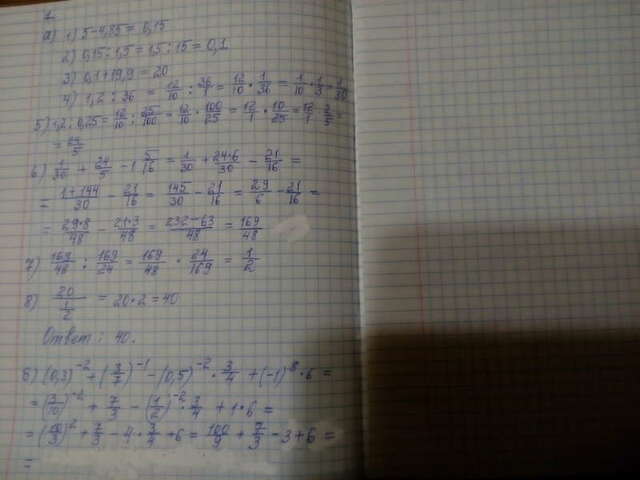 1.
а) 1) 5-4,85 = 0,15
2) 0,15 : 1,5 = 1,5 : 15 = 0,1
3) 0,1+19,9 = 20
4) 1,2 : 36 = 12/10 : 36/1 = 12/10 · 1/36 = 1/10 · 1/3 = 1/30
5) 1,2 : 0,25 = 12/10 : 25/100 = 12/10 · 100/25 = 12/1 · 10/25 = 12/1 · 2/5 =
= 24/5
6) 1/30 + 24/5 - 1 5/16 = 1/30 + 24·6/30 - 21/16 =
= 1+144/30 - 21/16 = 145/30 - 21/16 = 29/6 - 21/16 =
= 29·8/48 - 21·3/48 = 232-63/48 = 169/48
7) 169/48 : 169/24 = 169/48 · 24/169 = 1/2
8) 20/(1/2) = 20·2 = 40
Ответ: 40.
б) (0,3)^-2 + (3/7)^-1 - (0,5)^-2 · 3/4 + (-1)^-8 · 6 =
= (3/10)^-2 + 7/3 - (1/2)^-2 · 3/4 + 1·6 =
= (10/3)^2 + 7/3 - 4 · 3/4 + 6 = 100/9 + 7/3 - 3 + 6 =
=